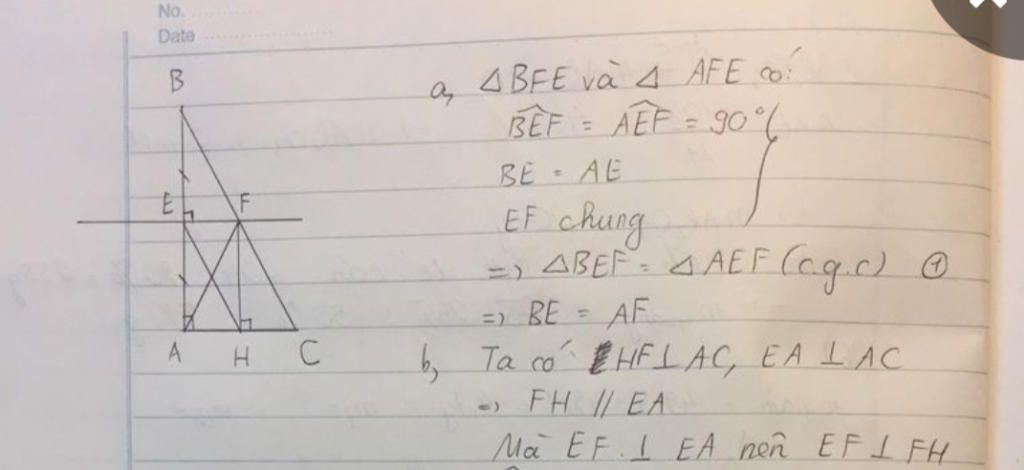 No.
Date
B
E
F
A
H
C
a, △BFE và △ AFE có:
BÊF = AÊF = 90°
BE = AE
EF chung
=> △BEF = △AEF (c.g.c) ①
=> BE = AF
b, Ta có HF⊥AC, EA ⊥ AC
=> FH // EA
Mà EF ⊥ EA nên EF ⊥ FH